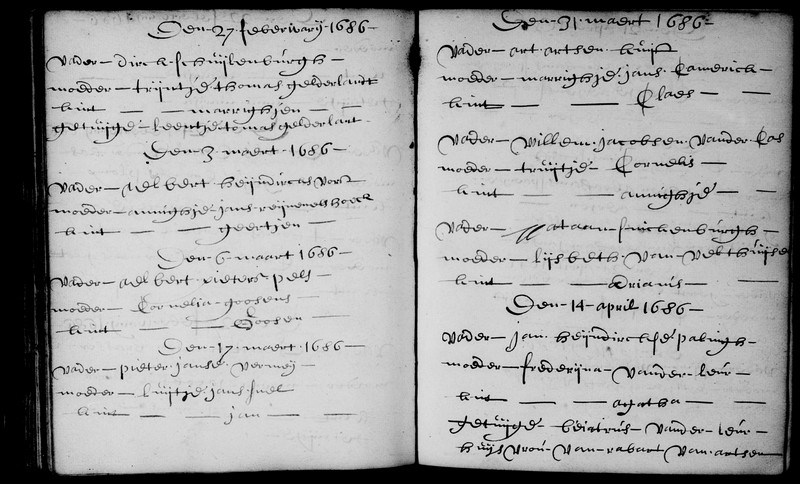 Den 27 feberwarij 1686
vader dirck schuijlenburgh
moeder trijntje thomas gelderlandt
kint marrighjen
getuijge leentje tomas gelderlant
Den 3 maert 1686
vader aelbert heijndircks vort
moeder annighje jans
kint geertjen
Den 6 maart 1686
vader aelbert pieters pels
moeder Cornelia goosens
kint Goosen
Den 17 maert 1686
vader pieter janse vermeij
moeder luijtje jans snel
kint jan
Den 31 maert 1686
vader art artsen kuijf
moeder marrighje jans Camerick
kint Claes
vader willem jacobsen vander Cas
moeder truijtje Cornelis
kint annighje
vader suickenburgh
moeder lijsbeth van velthuijse
kint Adrianus
Den 14 april 1686
vader jan heijndirckse palingh
moeder frederijna vander leur
kint agatha
getuijge beatrus vander leur
huijsvrou van rabart van arthen